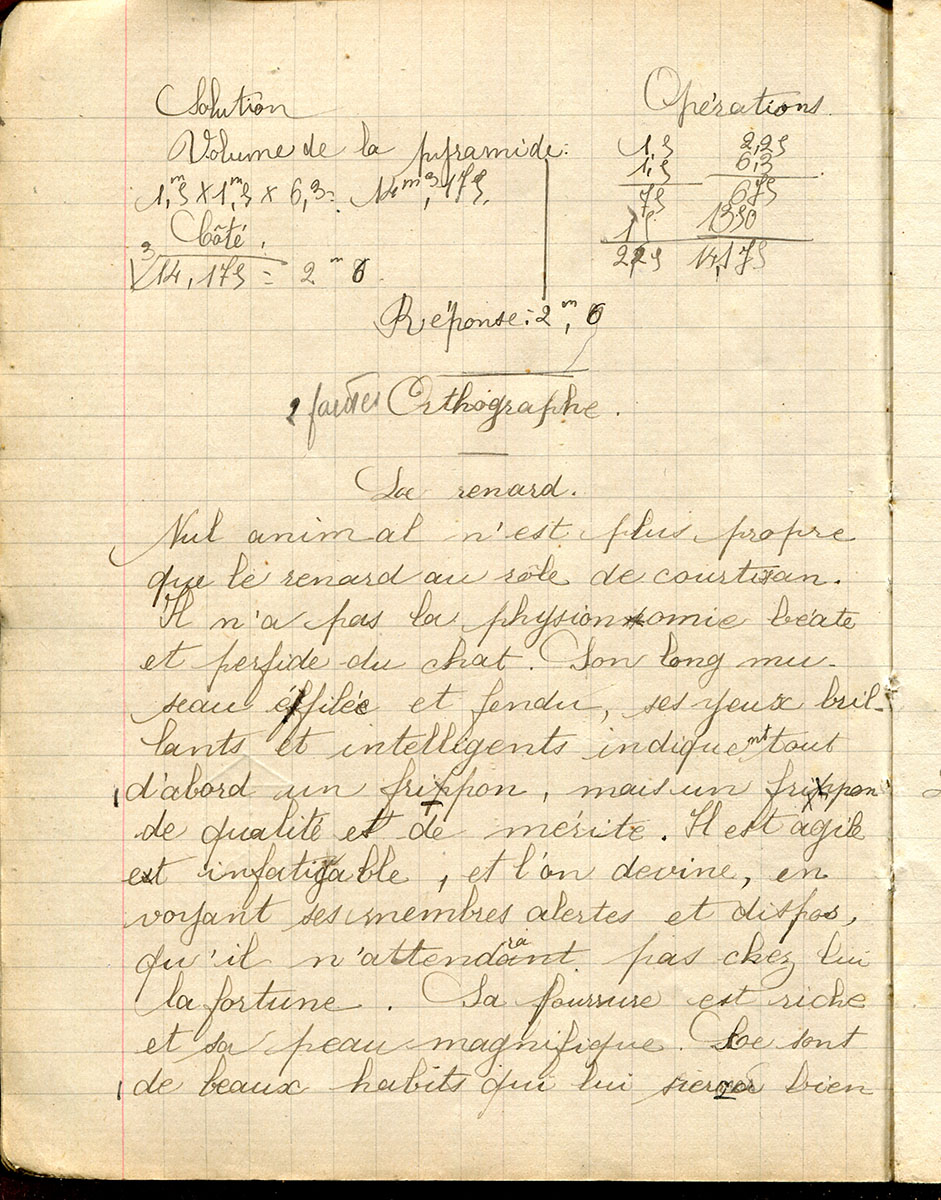 Solution
Opérations
Volume de la pyramide:
1,5 2,25
1,5 6,3
1,m5 x 1,m5 x 6,3 = 14m3,175
75 675
15 1350
225 14,175
Côté.
3√14,175 = 2m 6
Réponse: 2m,6
2 fautes Orthographe.
Le renard.
Nul animal n'est plus propre
que le renard au rôle de courtisan.
Il n'a pas la physionomie béate
et perfide du chat. Son long mu-
seau effilé et fendu, ses yeux bril-
lants et intelligents indiquent tout
d'abord un fripon, mais un fripon
de qualité et de mérite. Il est agile
et infatigable, et l'on devine, en
voyant ses membres alertes et dispos,
qu'il n'attendra pas chez lui
la fortune. Sa fourrure est riche
et sa peau magnifique. Ce sont
de beaux habits qui lui bien